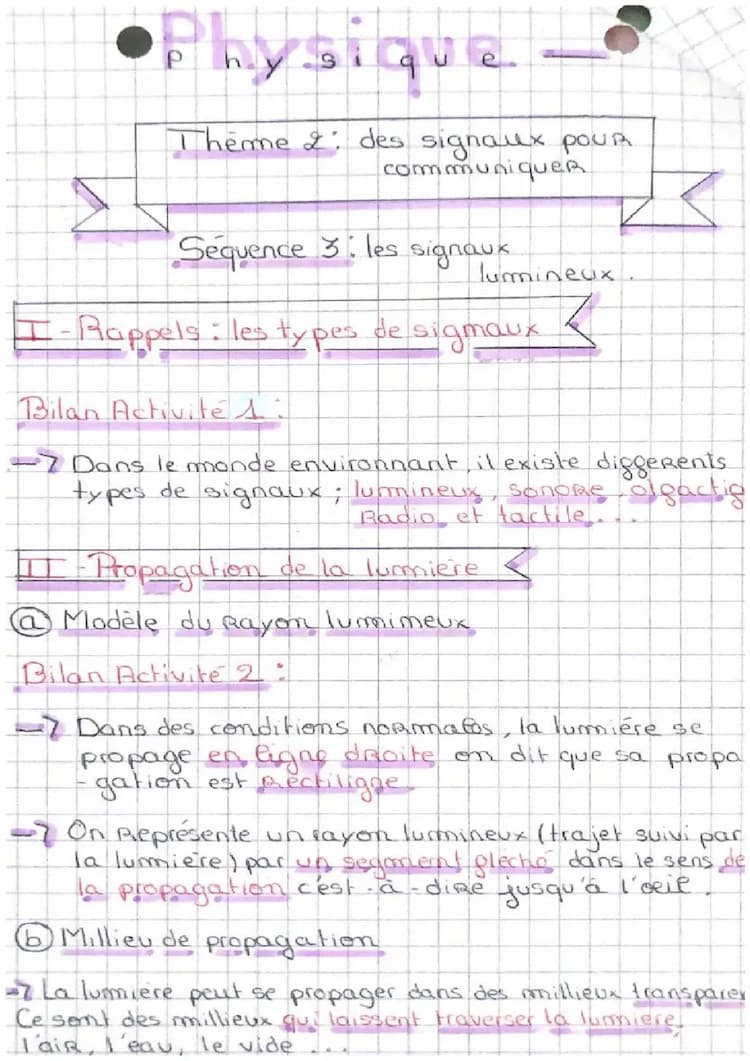 Physique
Thème 2: des signaux pour
communiquer
Séquence 3: les signaux
lumineux.
I - Rappels : les types de sigmaux
Bilan Activité 1 :
→ Dans le monde environnant, il existe differents
types de signaux ; lumineux, sonore, olfactif
Radio et tactile...
II - Propagation de la lumière
a Modèle du rayon lumimeux
Bilan Activité 2 :
→ Dans des conditions normales, la lumiére se
propage en ligne droite on dit que sa propa
-gation est Rectiligne.
→ On Représente un rayon lumineux (trajet suivi par
la lumière) par un segment fléché dans le sens de
la propagation c'est-à-dire jusqu'à l'oeil.
b Millieu de propagation
→ La lumière peut se propager dans des millieux transparen
Ce sont des millieux qui laissent traverser la lumière,
l'air, l'eau, le vide ...